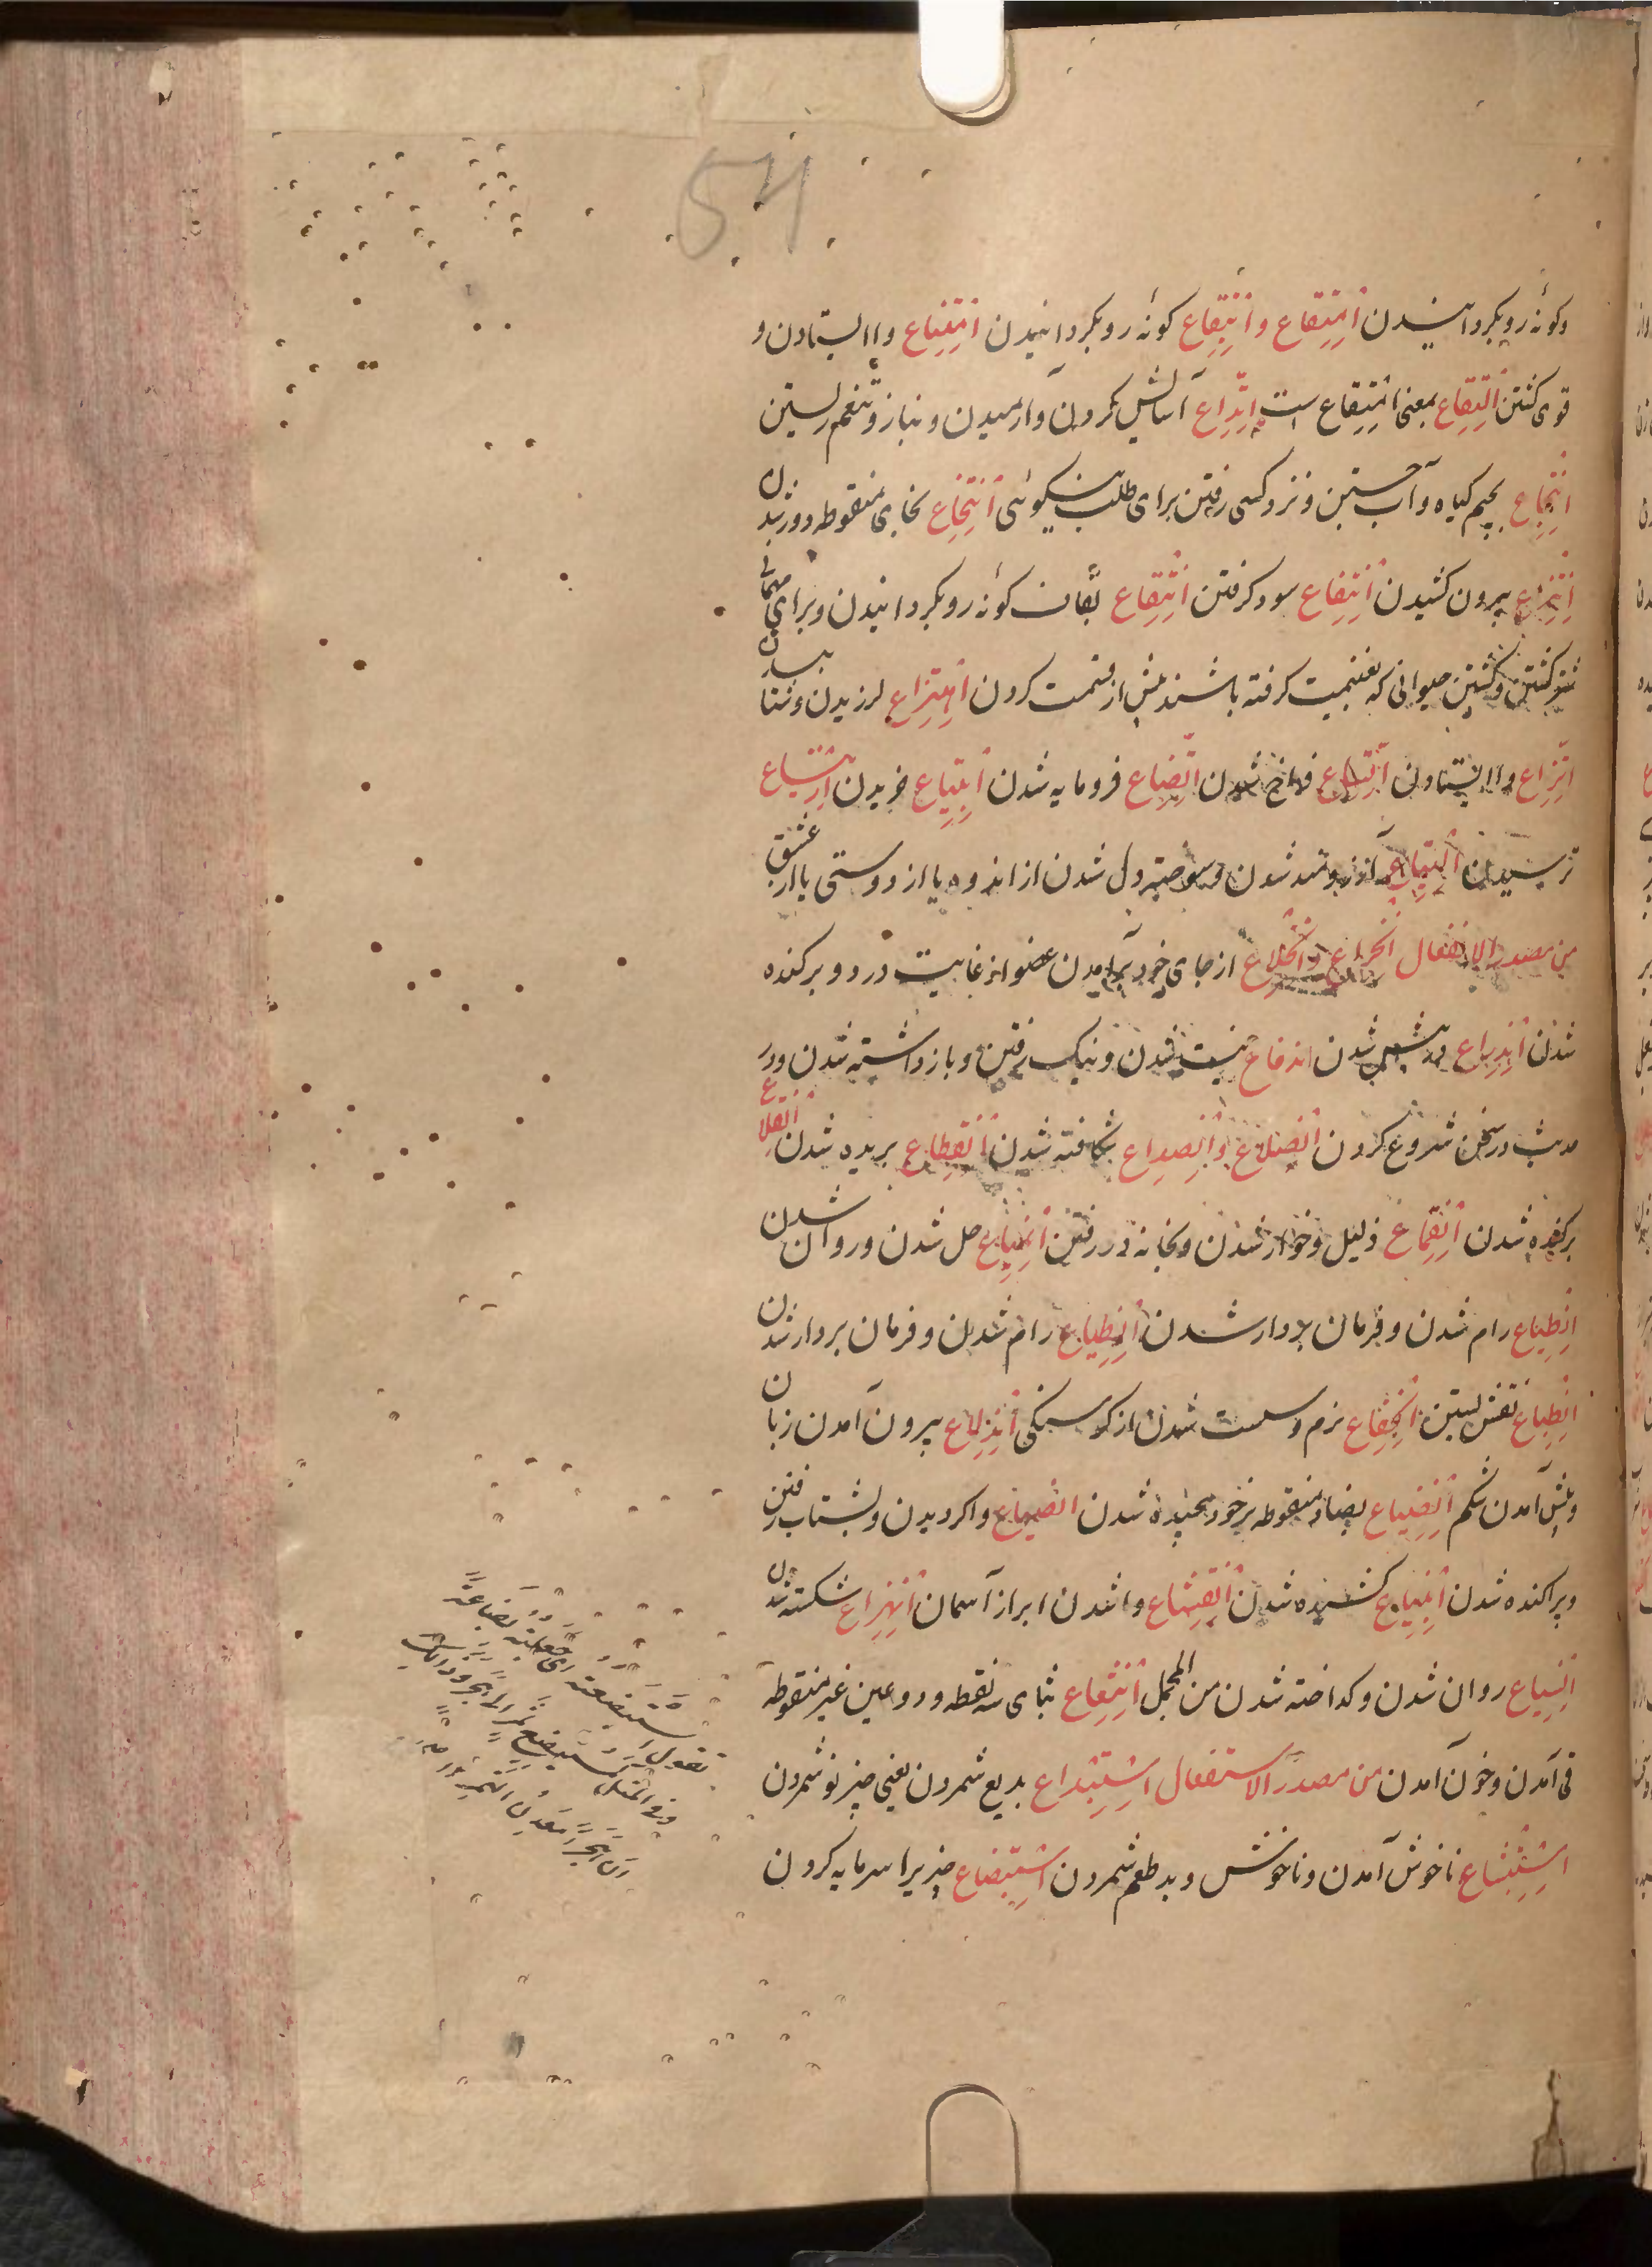 54
وکونه رو بکردانیدن امتقاع وانتقاع کونه رو بکردانیدن امتناع واایستادن و
قوی کشتن التقاع بمعنی امتقاع است اتداع آسایش کردن وآرمیدن وبناز وتنعم زیستن
انتجاع بجیم کیاه وآب جستن ونزد کسی رفتن برای طلب نیکوئی انتخاع بخای منقوطه دور شدن
انتزاع بیرون کشیدن انتفاع سود کرفتن انتقاع بقاف کونه رو بکردانیدن وبرای مهمانی
شتر کشتن وکشتن حیوانی که بغنیمت کرفته باشند پیش از قسمت کردن اهتزاع لرزیدن وشتابیدن
اتزاع واایستادن اتساع فراخ شدن اتضاع فرومایه شدن ابتیاع خریدن ارتیاع
ترسیدن التیاع آرزومند شدن وسوخته دل شدن از اندوه یا از دوستی یا از عشق
من مصدر الانفعال انخراع وانخلاع از جای خود برآمدن عضو از غایت درد وبرکنده
شدن اندراع پیش شدن اندفاع نیست شدن ونیک رفتن وباز داشته شدن ودر
حدیث در سخن شروع کردن انصلاع وانصداع شکافته شدن انقطاع بریده شدن انقلاع
برکنده شدن انقماع ذلیل وخوار شدن وبخانه در رفتن انمیاع حل شدن وروان شدن
انطیاع رام شدن وفرمان بردار شدن انطیاع رام شدن وفرمان بردار شدن
انطباع نقش بستن انخفاع نرم وسست شدن از کرسنکی اندلاع بیرون آمدن زبان
وپیش آمدن شکم انضیاع بضاد منقوطه بر خود پیچیده شدن انصیاع واکردیدن وبشتاب رفتن
وپراکنده شدن انبیاع کشیده شدن انقشاع واشدن ابر از آسمان انهزاع شکسته شدن
انسیاع روان شدن وکداخته شدن من المجمل انثعاع بثای سه نقطه ودو عین غیر منقوطه
قی آمدن وخون آمدن من مصدر الاستفعال استبداع بدیع شمردن یعنی چیز نو شمردن
استبشاع ناخوش آمدن وناخوش وبد طعم شمردن استبضاع چیزیرا سرمایه کردن
تقول استبضعته ای جعلته بضاعة
وفی المثل کمستبضع تمر الی هجر وذالک
ان هجرا معدن التمر